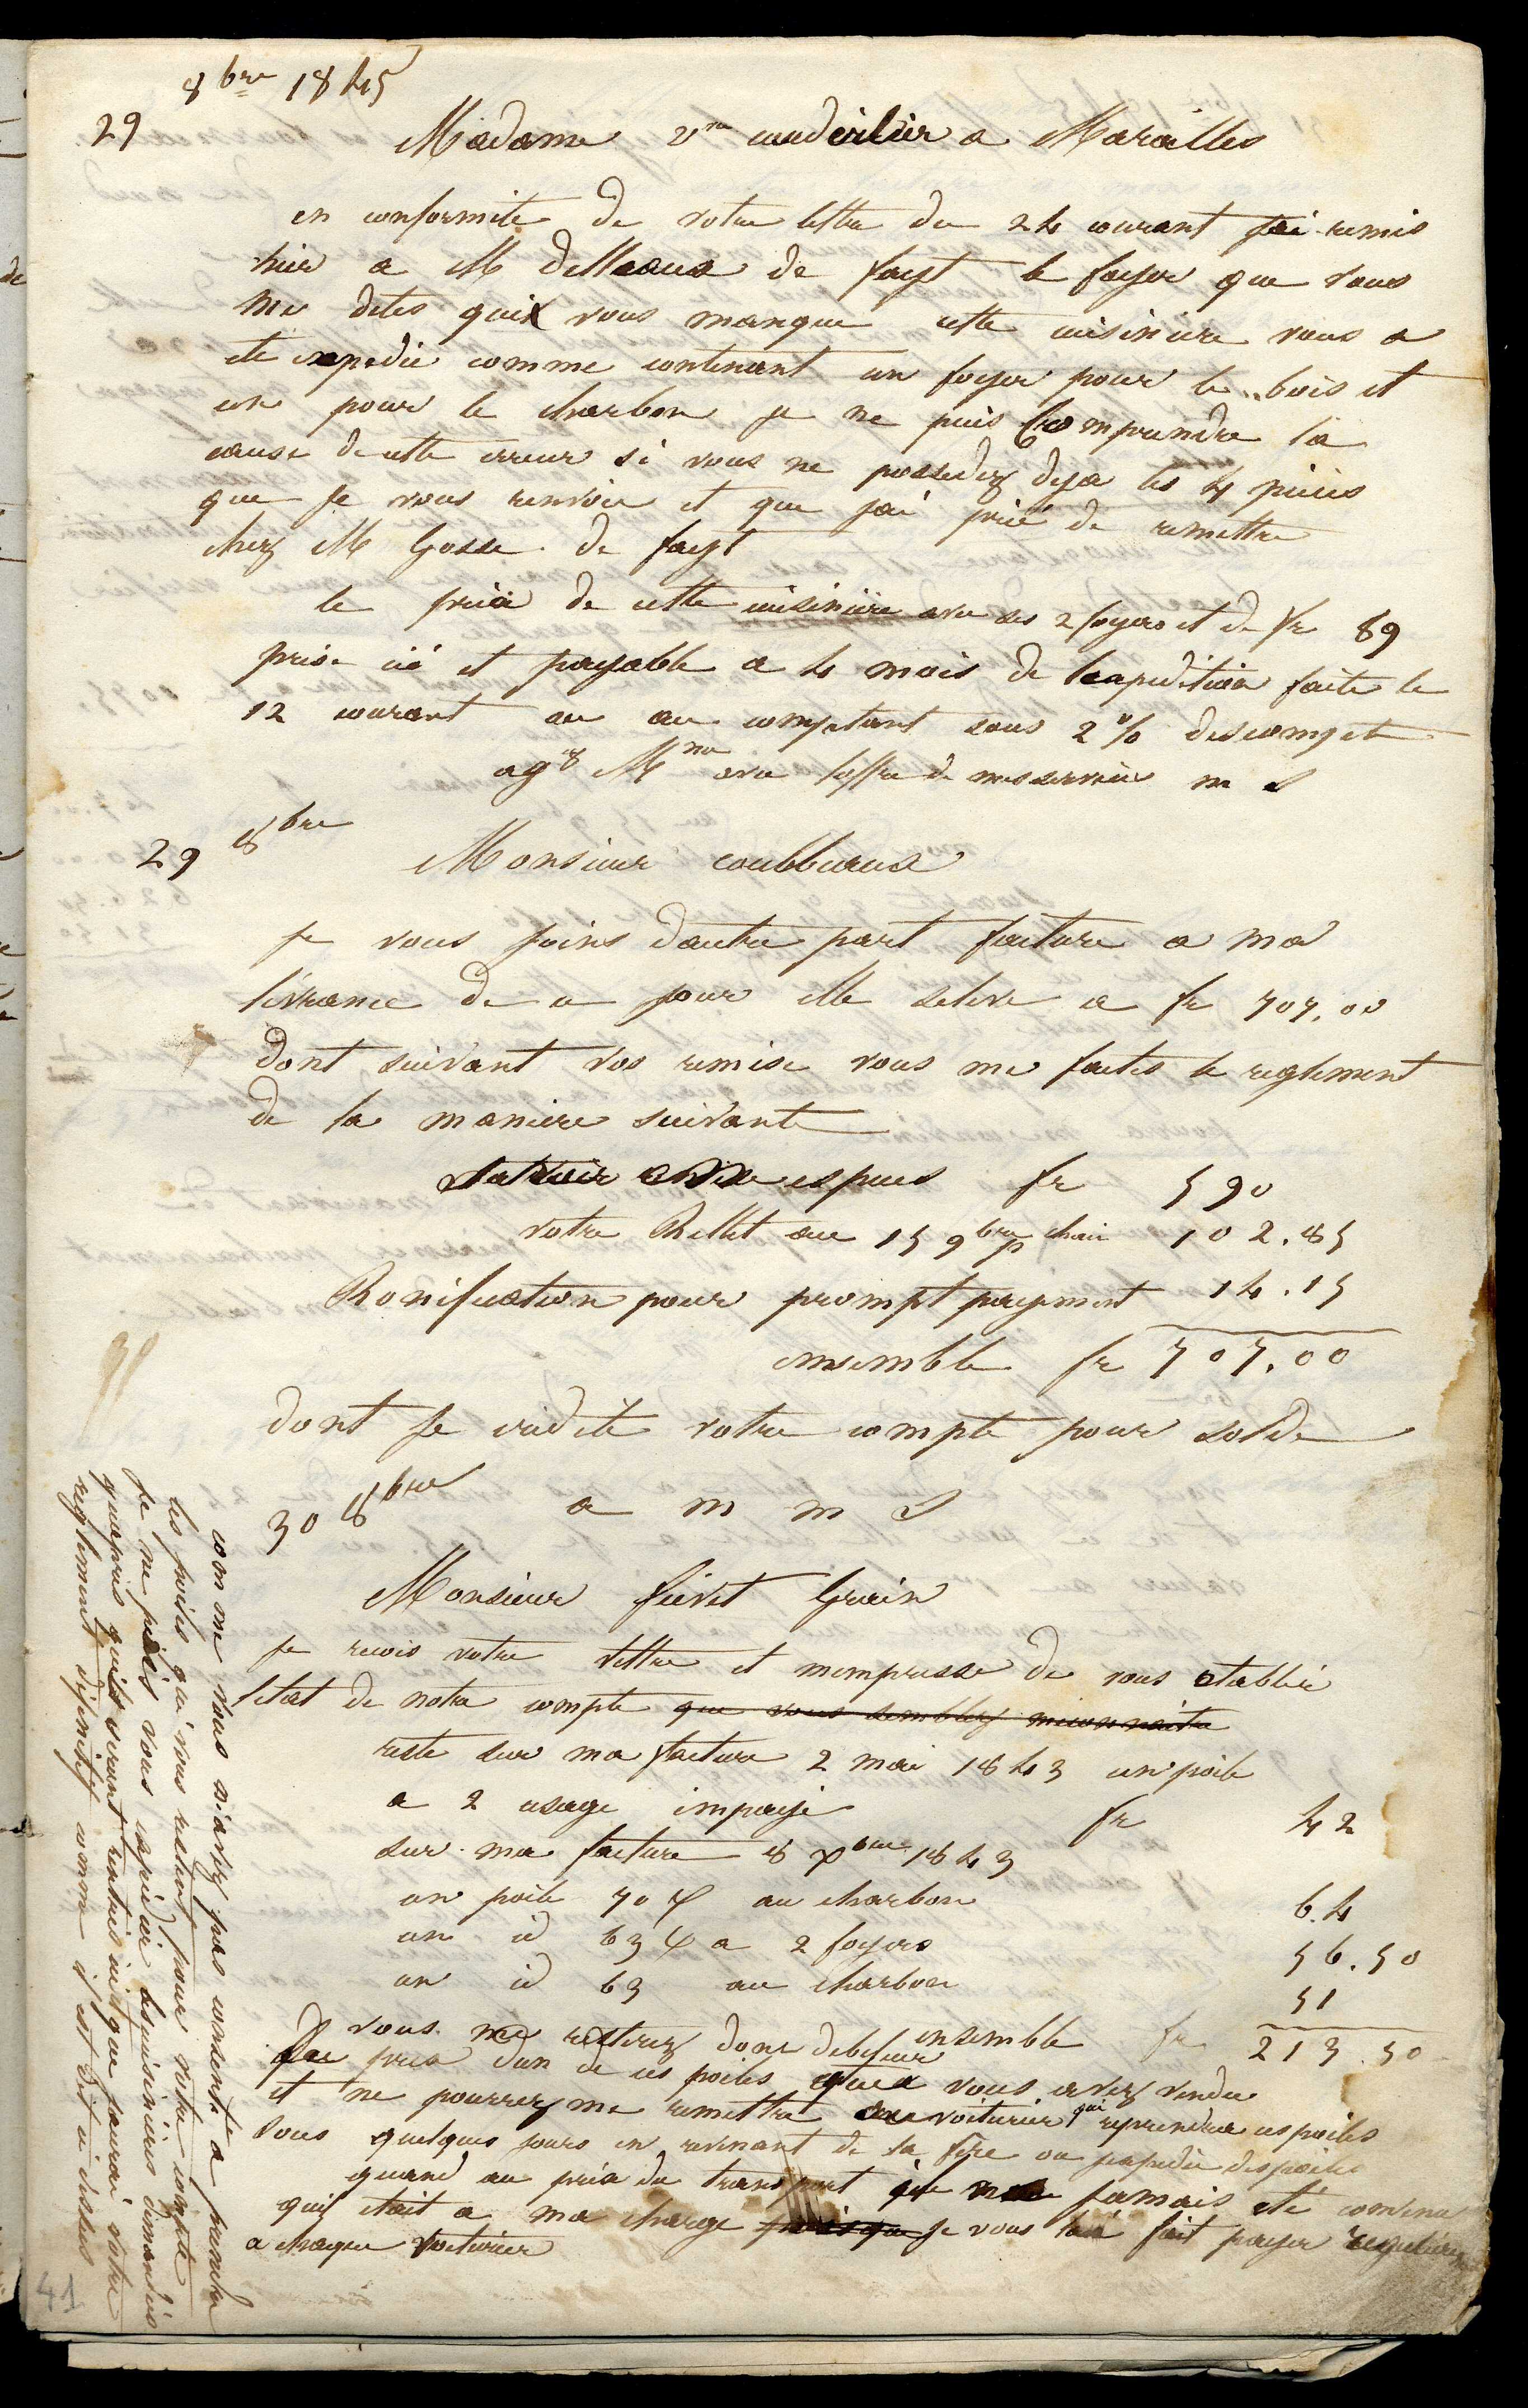 8bre 1845
29
Madame Vve cuvelier a Maroilles
en conformite de votre lettre du 24 courant jai remis
hier a M delleaux de fayt le foyer que vous
me dites quil vous manque cette cuisiniere vous a
ete expedie comme contenant un foyer pour le bois et
un pour le charbon je ne puis Comprendre la
cause de cette erreur si vous ne possedez deja les 4 pieces
que je vous renvoie et que jai prié de remettre
chez M Gosse de fayt
le prix de cette cuisiniere avec ses 2 foyers et de fr 89
prise ici et payable a 4 mois de lexpedition faite le
12 courant ou au comptant sous 2% descompte
agz Mme avec loffre de mes services m s
29 8bre
Monsieur coubbeaux
je vous joins dautre part facture a ma
livrance de ce jour elle seleve a fr 707.00
dont suivant vos remise vous me faites le reglement
de la maniere suivante
Savoir especes fr 590
votre Billet au 15 9bre p chain 102.85
Bonification pour prompt payement 14.15
ensemble fr 707.00
dont je credite votre compte pour solde
a m m s
30 8bre
Monsieur fievet Grain
je recois votre lettre et mempresse de vous etablir
letat de notre compte que vous semblez meconnaitre
reste sur ma facture 2 mai 1843 un poile
a 2 usage impayé fr 42
sur ma facture 8 Xbre 1843
un poile 70 au charbon 64
un id 63 a 2 foyers 56.50
un id 63 au charbon 51
ensemble fr 213.50
vous me resterez donc debiteur
du prix dun de ces poiles que vous avez vendu
et ne pourrez me remettre au voiturier qui reprendra ces poiles
sous quelques jours en revenant de la fere ou jexpedie des poiles
quand au prix du transport jamais eté convenu
quil etait a ma charge puisque je vous lai fait payer
a chaque voiturier
comme vous n'avez pas consenti a prendre
les poiles qui vous restent pour votre compte
je ne puis vous expedier les cuisinieres demandées
quapres quils seront rentrés ici et que jaurai votre
reglement definitif comme il est dit ci dessus
41